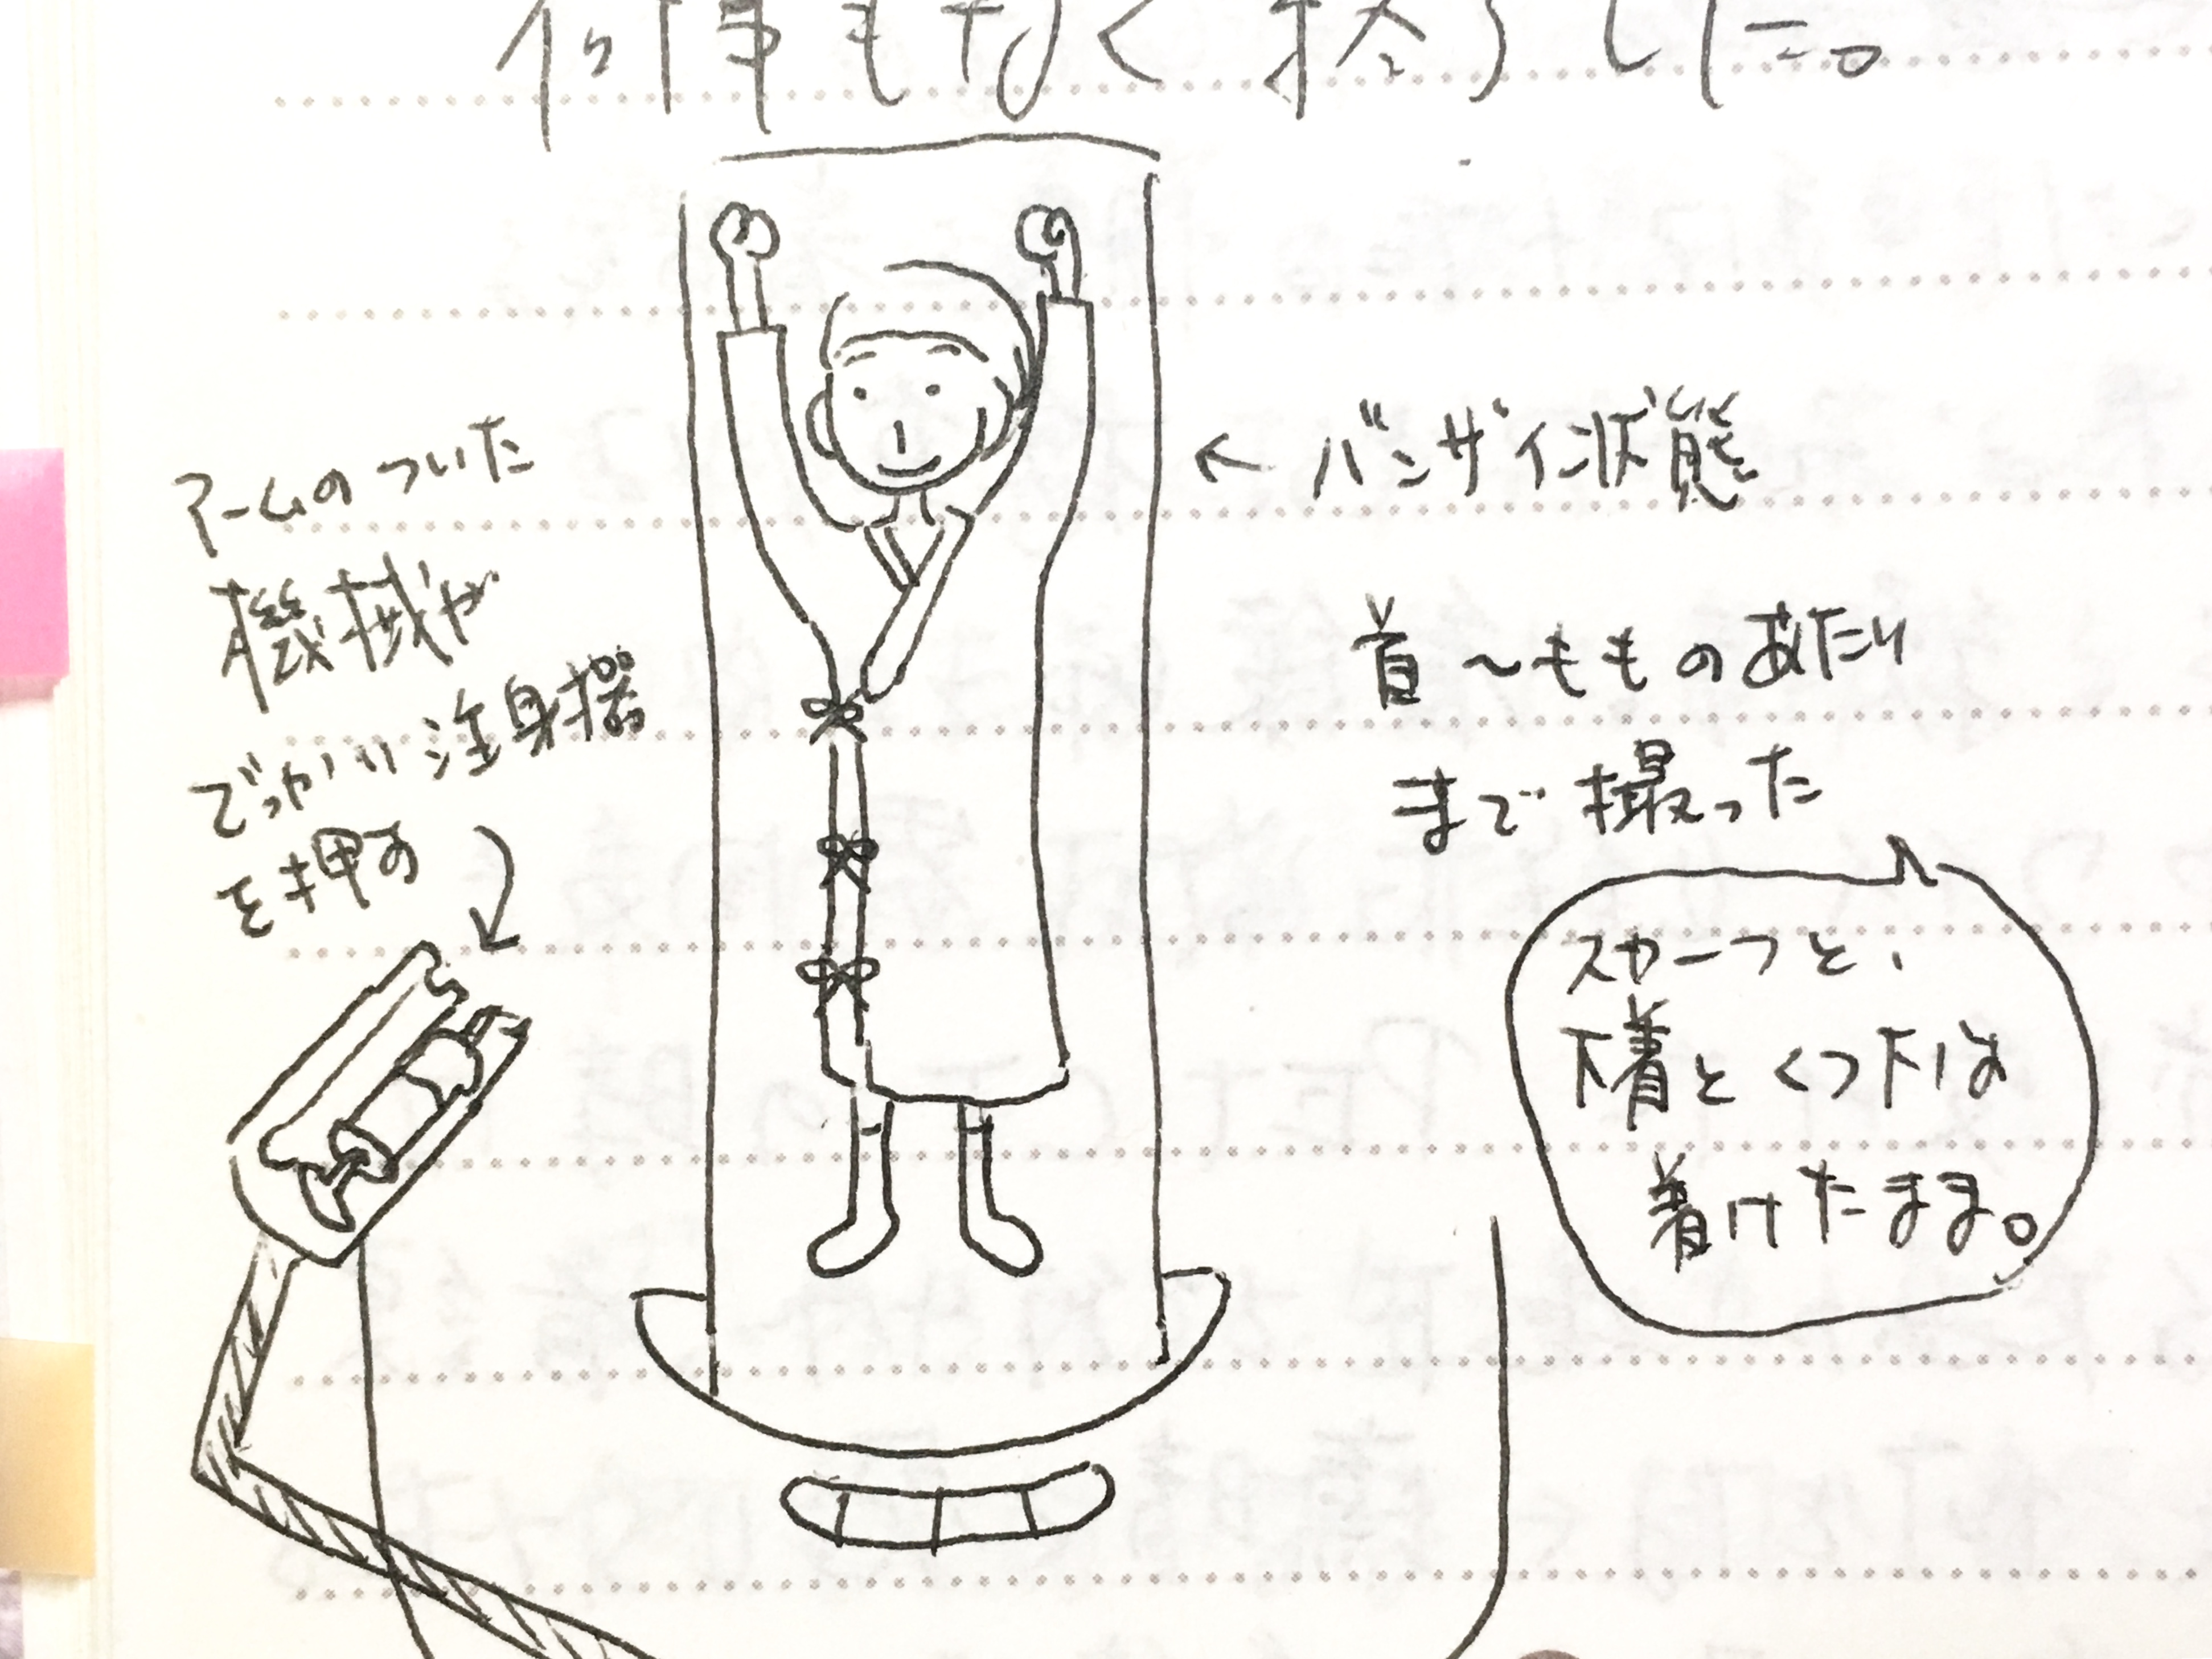 何事もなく終了した。
アームのついた
機械が
でっかい注射器
を押す
← バンザイ状態
首〜もものあたり
まで撮った
スカーフと、
下着とくつ下は
着けたまま。